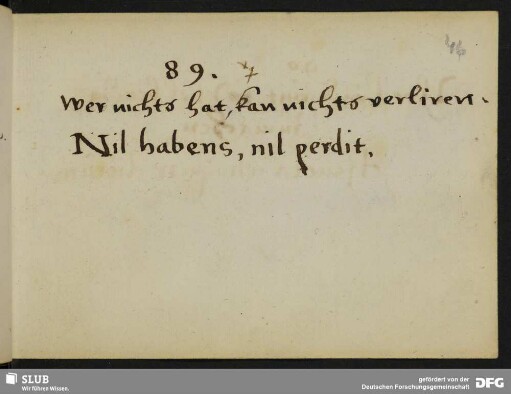 46
89. +
wer nichts hat, kan nichts verliren.
Nil habens, nil perdit.
SLUB
Wir führen Wissen.
gefördert von der
Deutschen Forschungsgemeinschaft
DFG